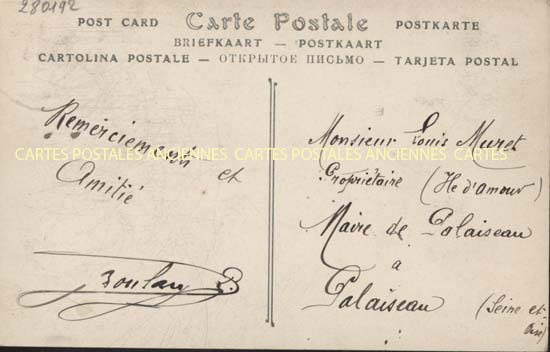 280192
POST CARD Carte Postale POSTKARTE
BRIEFKAART — POSTKAART
CARTOLINA POSTALE — ОТКРЫТОЕ ПИСЬМО — TARJETA POSTAL
Remerciement
et
Amitié
Boulan
Monsieur Louis Muret
Propriétaire (Ile d'amour)
Maire de Palaiseau
à
Palaiseau (Seine et-
Oise)
CARTES POSTALES ANCIENNES CARTES POSTALES ANCIENNES CARTES